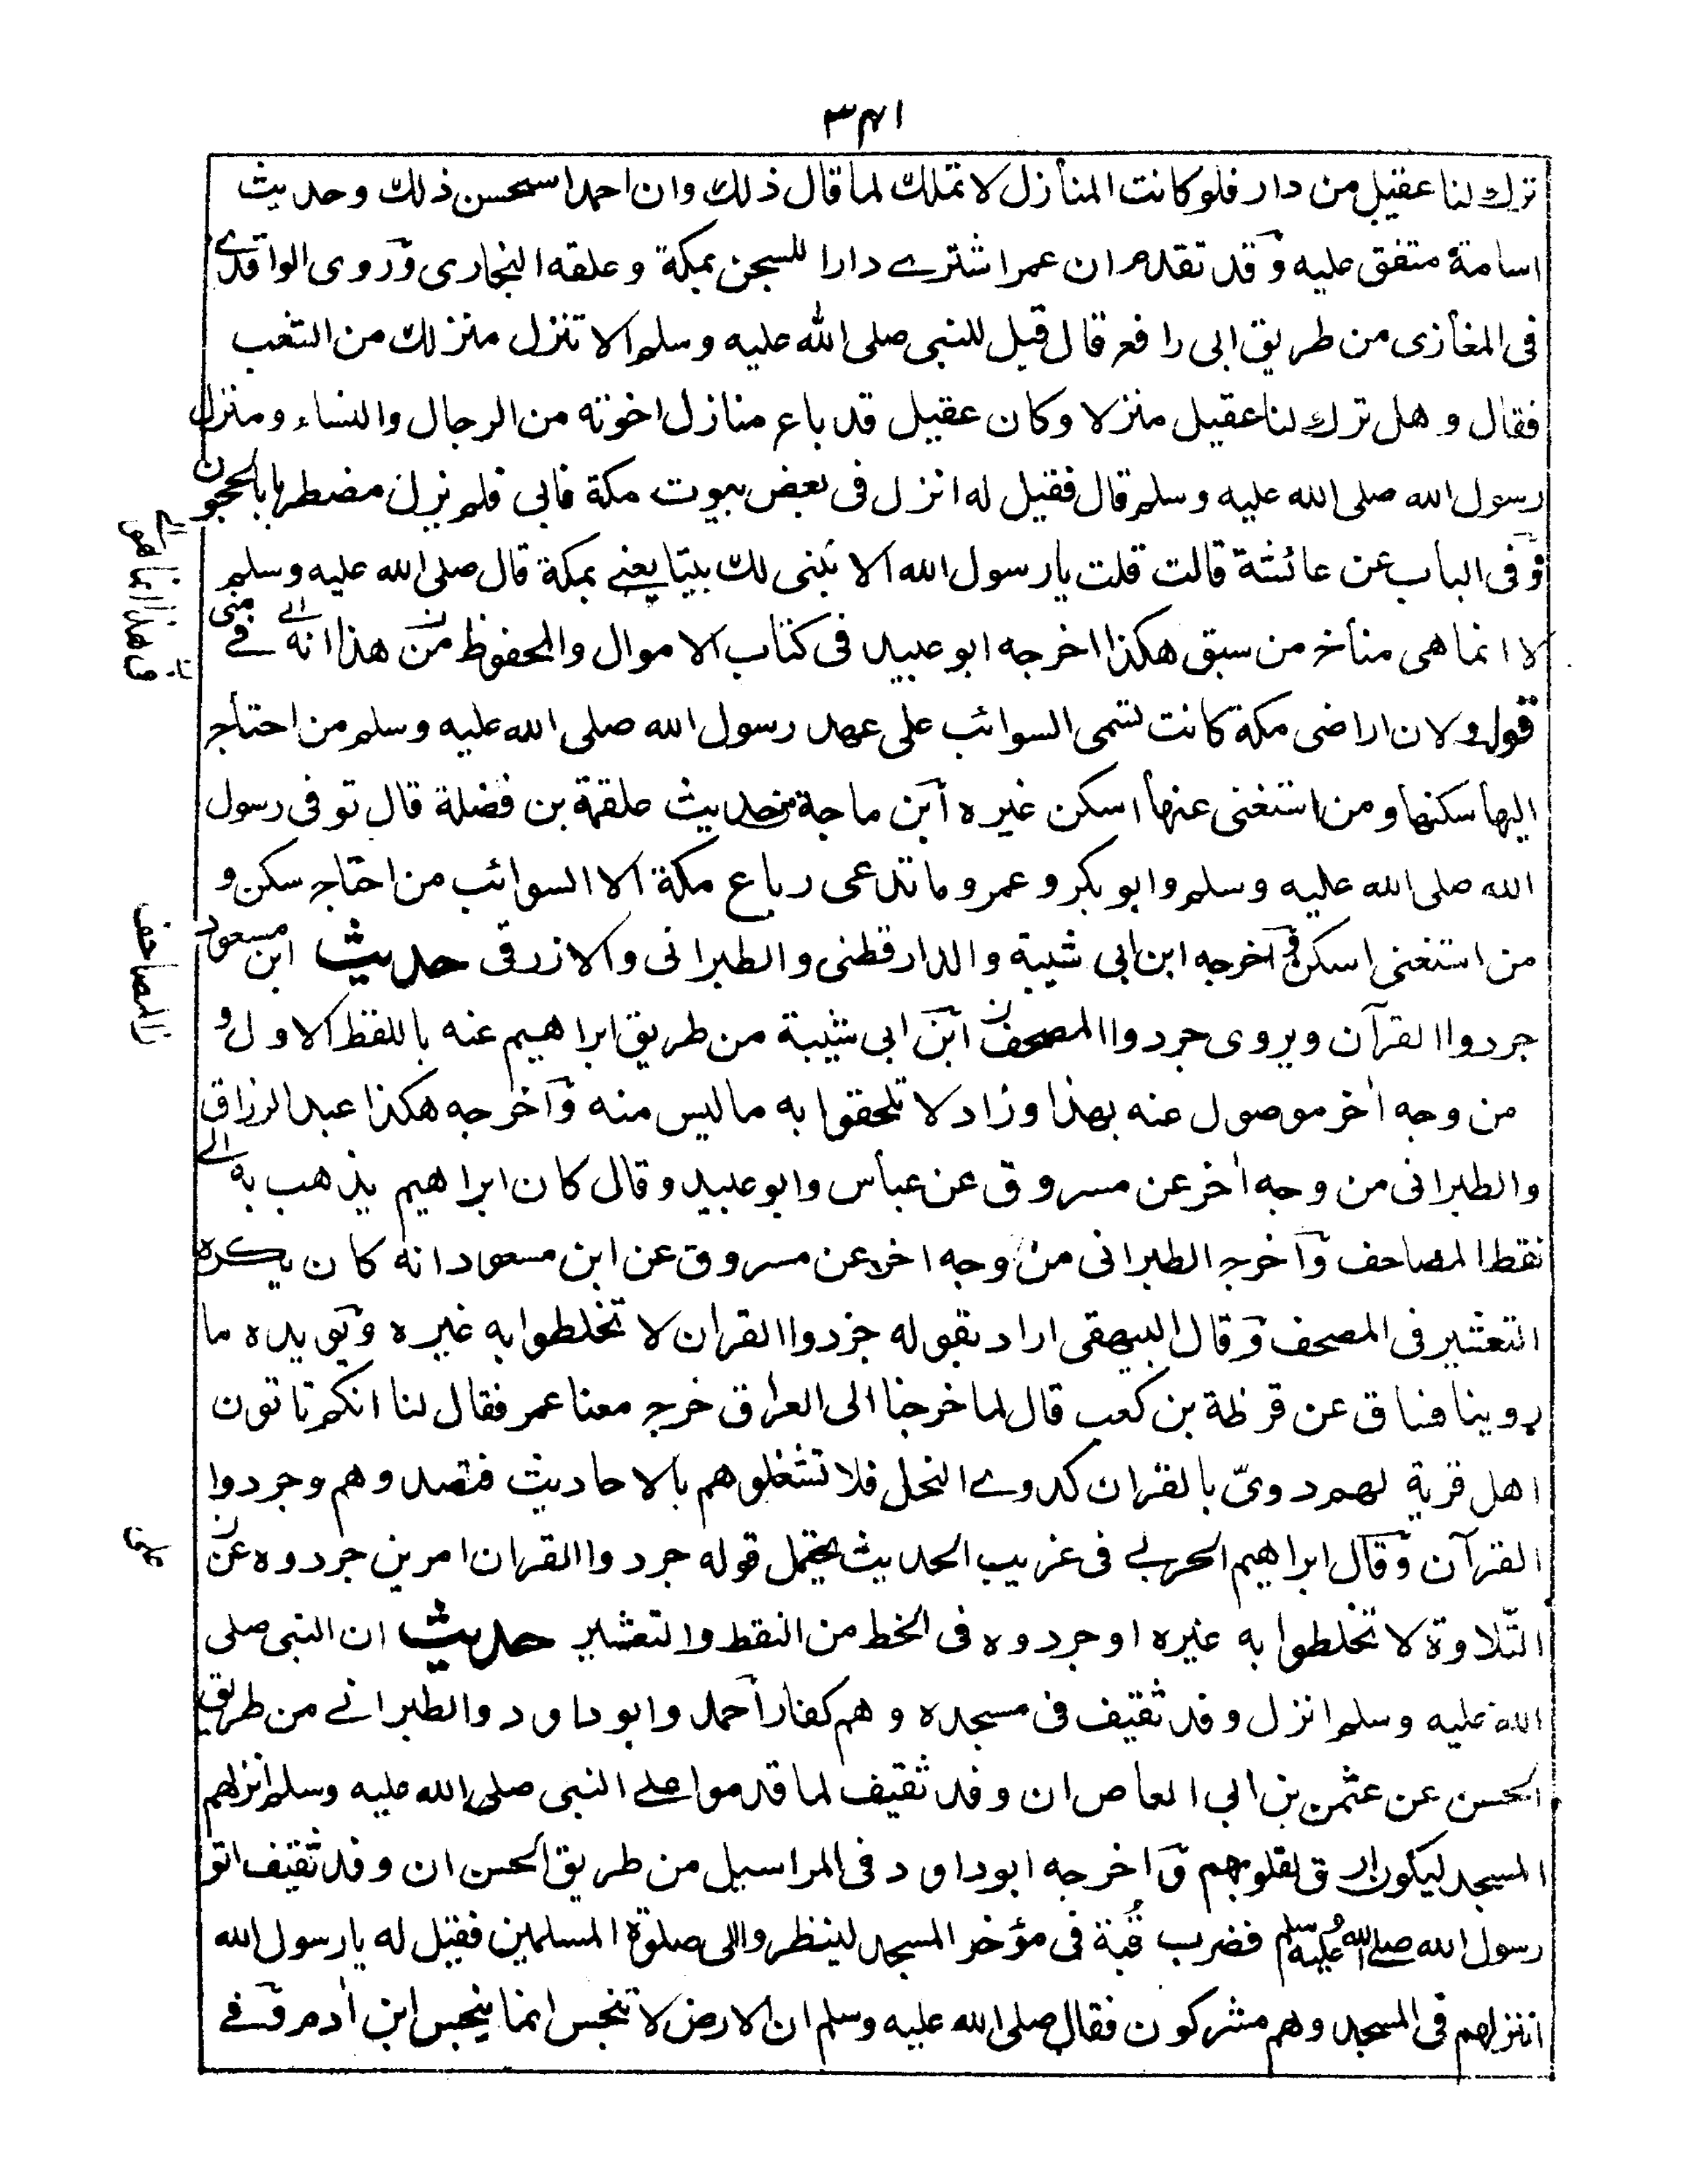 ٣٤١
ترك لنا عقيل من دار فلو كانت المنازل لا تملك لما قال ذلك وان احمد استحسن ذلك وحديث
اسامة متفق عليه وقد تقدم ان عمر اشترے دارا للسجن بمكة وعلقه البخاری وروی الواقدے
فی المغازی من طريق ابی رافع قال قيل للنبی صلی الله عليه وسلم الا تنزل منزلك من الشعب
فقال وهل ترك لنا عقيل منزلا وكان عقيل قد باع منازل اخوته من الرجال والنساء ومنزل
رسول الله صلی الله عليه وسلم قال فقيل له انزل فی بعض بيوت مكة فابی فلم نزل مضطربا بالحجون
وفی الباب عن عائشة قالت قلت يا رسول الله الا نبنی لك بيتا يعنے بمكة قال صلی الله عليه وسلم
لا انما هی مناخ من سبق هكذا اخرجه ابو عبيد فی كتاب الاموال والمحفوظ من هذا انه الے فے منی
قوله ولان اراضی مكة كانت تسمی السوائب علی عهد رسول الله صلی الله عليه وسلم من احتاج
اليها سكنها ومن استغنی عنها اسكن غيره ابن ماجة من حديث علقمة بن فضلة قال توفی رسول
الله صلی الله عليه وسلم وابو بكر وعمر وما تدعی رباع مكة الا السوائب من احتاج سكن و
من استغنی اسكن واخرجه ابن ابی شيبة والدارقطنی والطبرانی والازرقی حديث ابن مسعود
جردوا القرآن ويروی جردوا المصحف ابن ابی شيبة من طريق ابراهيم عنه باللفظ الاول و
من وجه اٰخر موصول عنه بهذا وزاد لا تلحقوا به ما ليس منه واخرجه هكذا عبد الرزاق
والطبرانی من وجه اٰخر عن مسروق عن عباس وابو عبيد وقال كان ابراهيم يذهب به الے
نقط المصاحف واخرج الطبرانی من وجه اخر عن مسروق عن ابن مسعود انه كان يكره
التعشير فی المصحف وقال البيهقی اراد بقوله جردوا القران لا تخلطوا به غيره ويويده ما
روينا فناق عن قرظة بن كعب قال لما خرجنا الی العراق خرج معنا عمر فقال لنا انكم تاتون
اهل قرية لهم دویّ بالقران كدوے النحل فلا تشغلوهم بالاحاديث فتصدوهم وجردوا
القرآن وقال ابراهيم الحربے فی غريب الحديث يحتمل قوله جردوا القران امرين جردوه عن
التّلاوة لا تخلطوا به غيره او جردوه فی الخط من النقط والتعشير حديث ان النبی صلی
الله عليه وسلم انزل وفد ثقيف فی مسجده وهم كفار احمد وابو داود والطبرانے من طريق
الحسن عن عثمن بن ابی العاص ان وفد ثقيف لما قدموا علے النبی صلی الله عليه وسلم انزلهم
المسجد ليكون ارق لقلوبهم واخرجه ابو داود فی المراسيل من طريق الحسن ان وفد ثقيف اتو
رسول الله صلے الله عليه وسلم فضرب قُبة فی مؤخر المسجد لينظروا الی صلوة المسلمين فقيل له يا رسول الله
اتنزلهم فی المسجد وهم مشركون فقال صلی الله عليه وسلم ان الارض لا تنجس انما ينجس ابن اٰدم وفے
المصاحف
علی